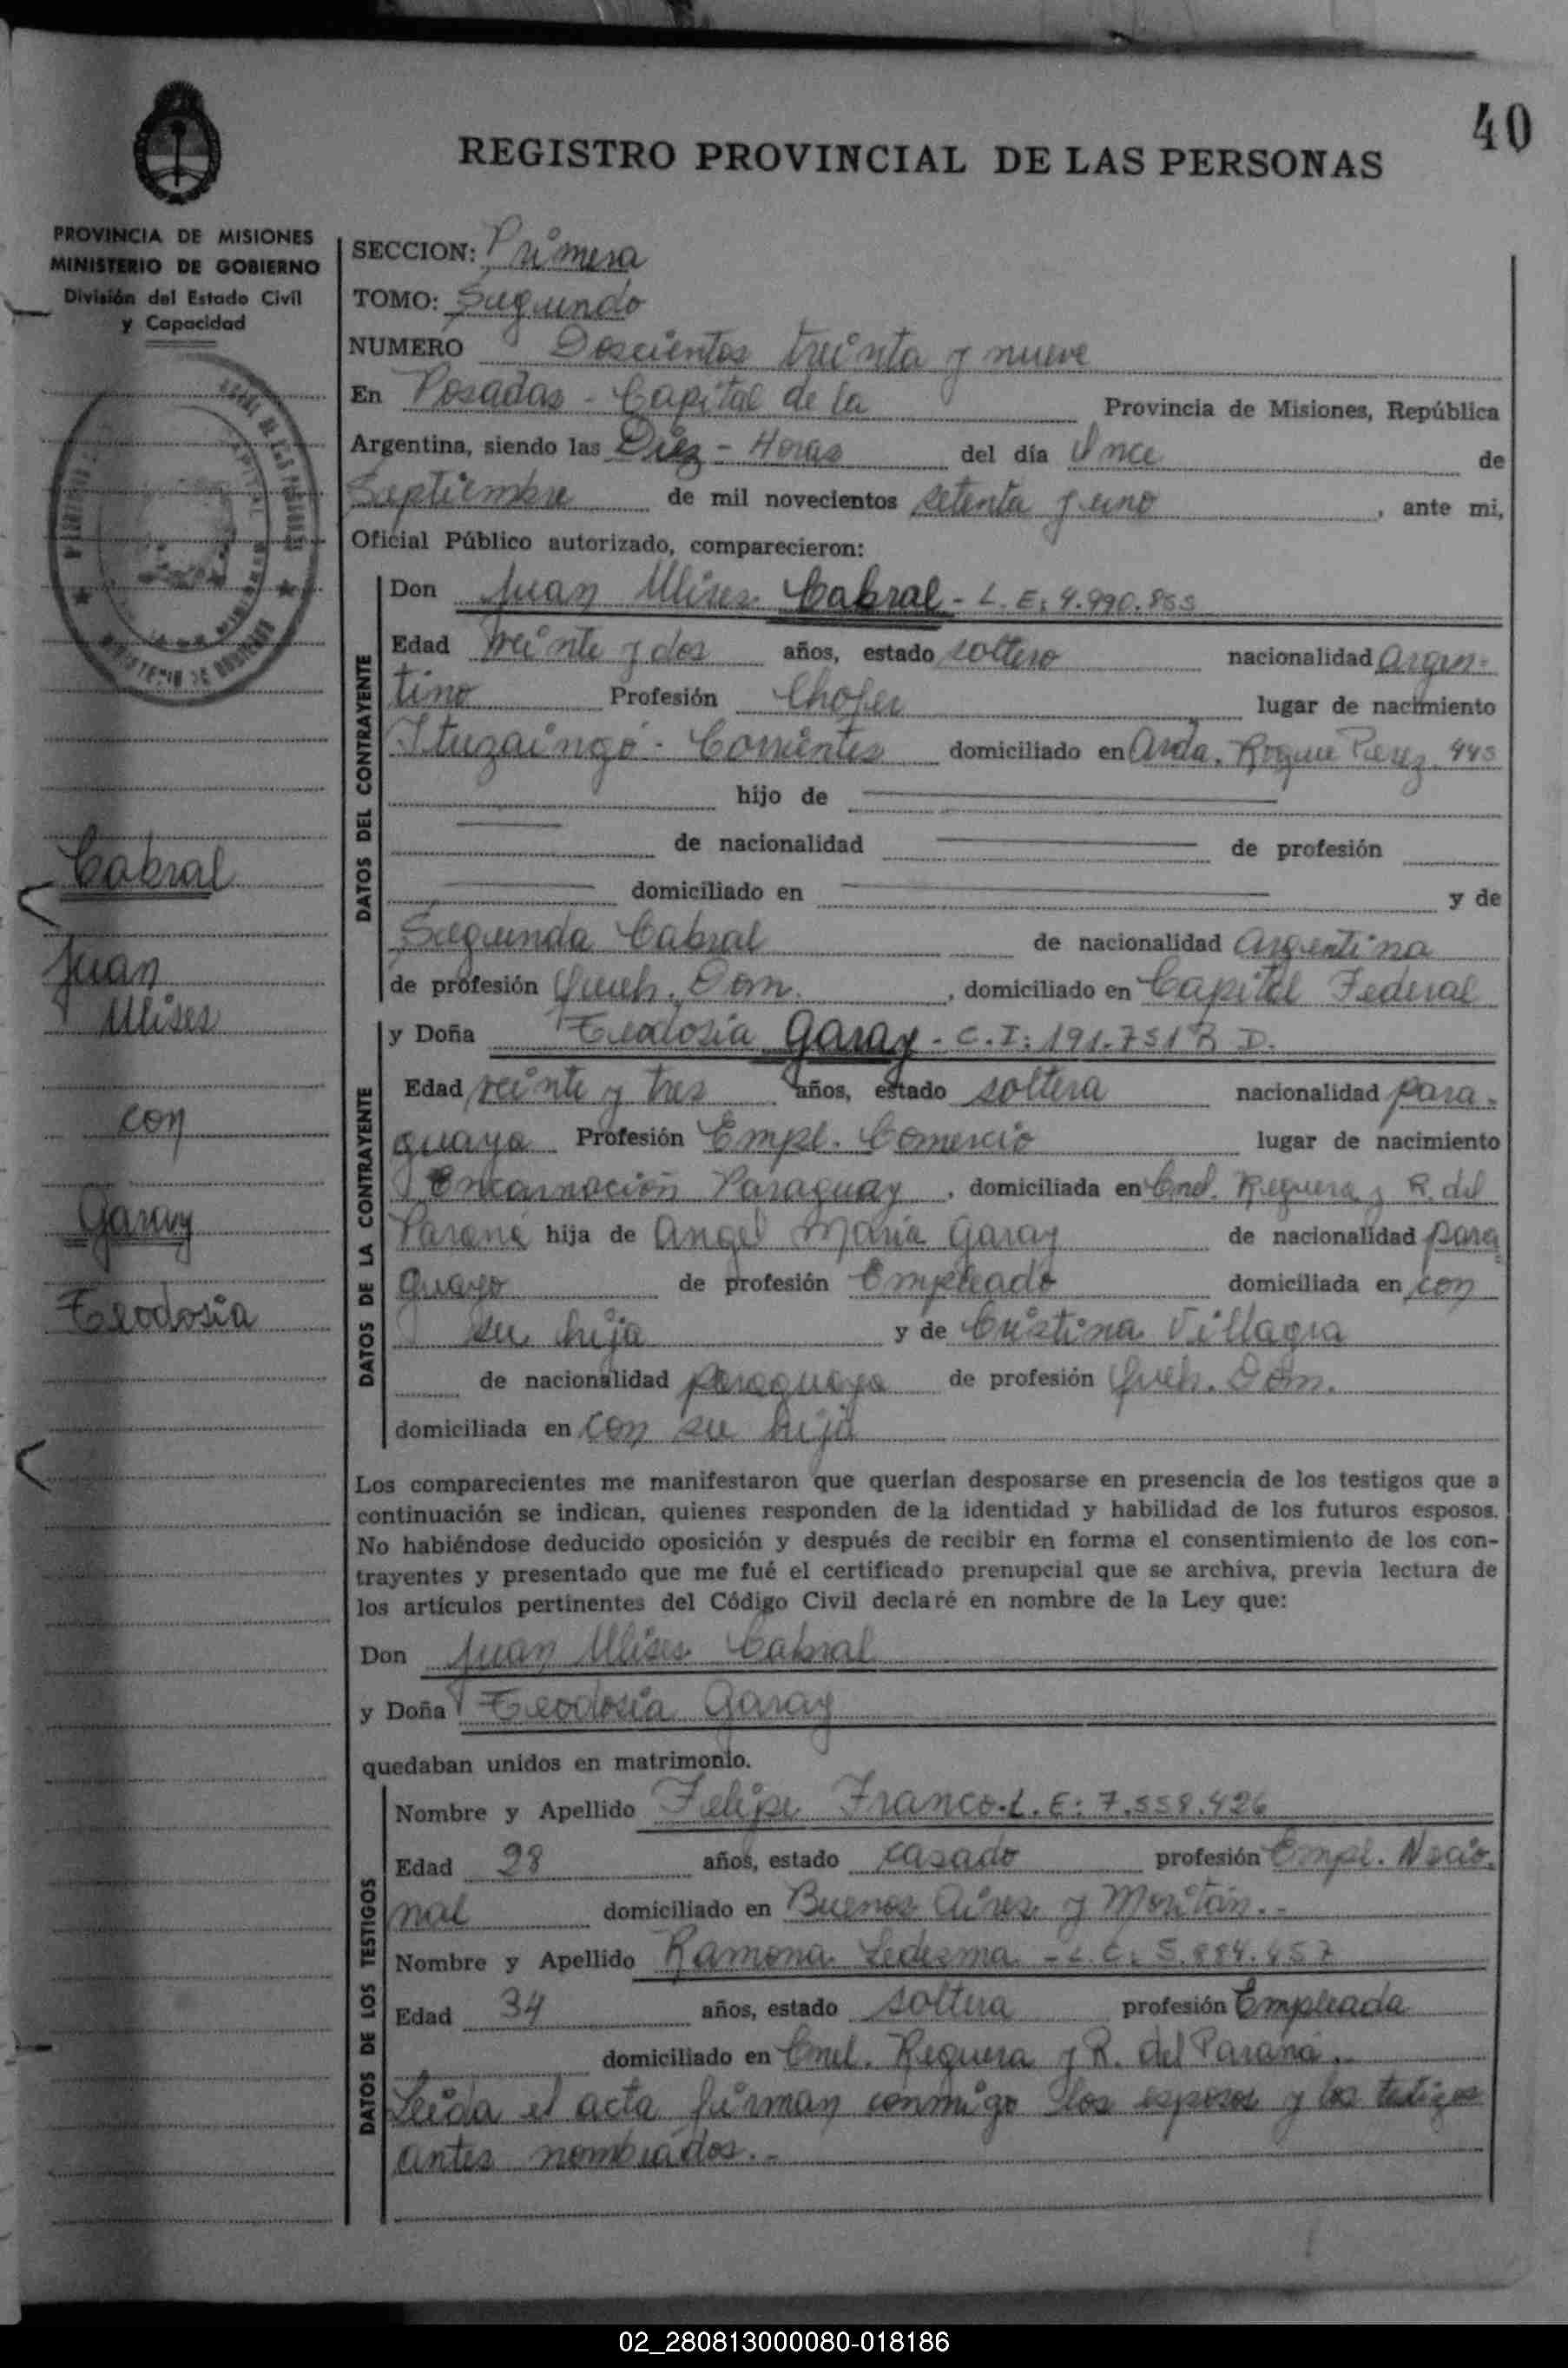 40
REGISTRO PROVINCIAL DE LAS PERSONAS
PROVINCIA DE MISIONES
MINISTERIO DE GOBIERNO
División del Estado Civil
y Capacidad
SECCION: Primera
TOMO: Segundo
NUMERO Doscientos treinta y nueve
En Posadas - Capital de la Provincia de Misiones, República
Argentina, siendo las Diez - Horas del día Once de
Septiembre de mil novecientos setenta y uno, ante mi,
Oficial Público autorizado, comparecieron:
DATOS DEL CONTRAYENTE
Don Juan Ulises Cabral - L. E: 4.990.853
Edad treinta y dos años, estado soltero nacionalidad Argen-
tino Profesión Chofer lugar de nacimiento
Ituzaingó - Corrientes domiciliado en Avda. Roque Perez 443
hijo de
de nacionalidad de profesión
domiciliado en y de
Segunda Cabral de nacionalidad Argentina
de profesión Queh. Dom. , domiciliado en Capital Federal
DATOS DE LA CONTRAYENTE
y Doña Teodosia Garay - C.I: 191.751 R D.
Edad veinte y tres años, estado soltera nacionalidad para-
guaya Profesión Empl. Comercio lugar de nacimiento
Encarnación Paraguay , domiciliada en Cnel. Reguera y R. del
Paraná hija de Angel Maria Garay de nacionalidad para
guayo de profesión Empleado domiciliada en con
su hija y de Cristina Villagra
de nacionalidad paraguaya de profesión Queh. Dom.
domiciliada en con su hija
Los comparecientes me manifestaron que querían desposarse en presencia de los testigos que a
continuación se indican, quienes responden de la identidad y habilidad de los futuros esposos.
No habiéndose deducido oposición y después de recibir en forma el consentimiento de los con-
trayentes y presentado que me fué el certificado prenupcial que se archiva, previa lectura de
los artículos pertinentes del Código Civil declaré en nombre de la Ley que:
Don Juan Ulises Cabral
y Doña Teodosia Garay
quedaban unidos en matrimonio.
DATOS DE LOS TESTIGOS
Nombre y Apellido Felipe Franco. L. E: 7.558.426
Edad 28 años, estado casado profesión Empl. Nacio-
nal domiciliado en Buenos Aires y Moritán.-
Nombre y Apellido Ramona Ledesma - L.C: 5.884.457
Edad 34 años, estado soltera profesión Empleada
domiciliado en Cnel. Reguera y R. del Paraná.
Leida el acta firman conmigo los esposos y los testigos
antes nombrados.-
Cabral
Juan
Ulises
con
Garay
Teodosia
02_280813000080-018186